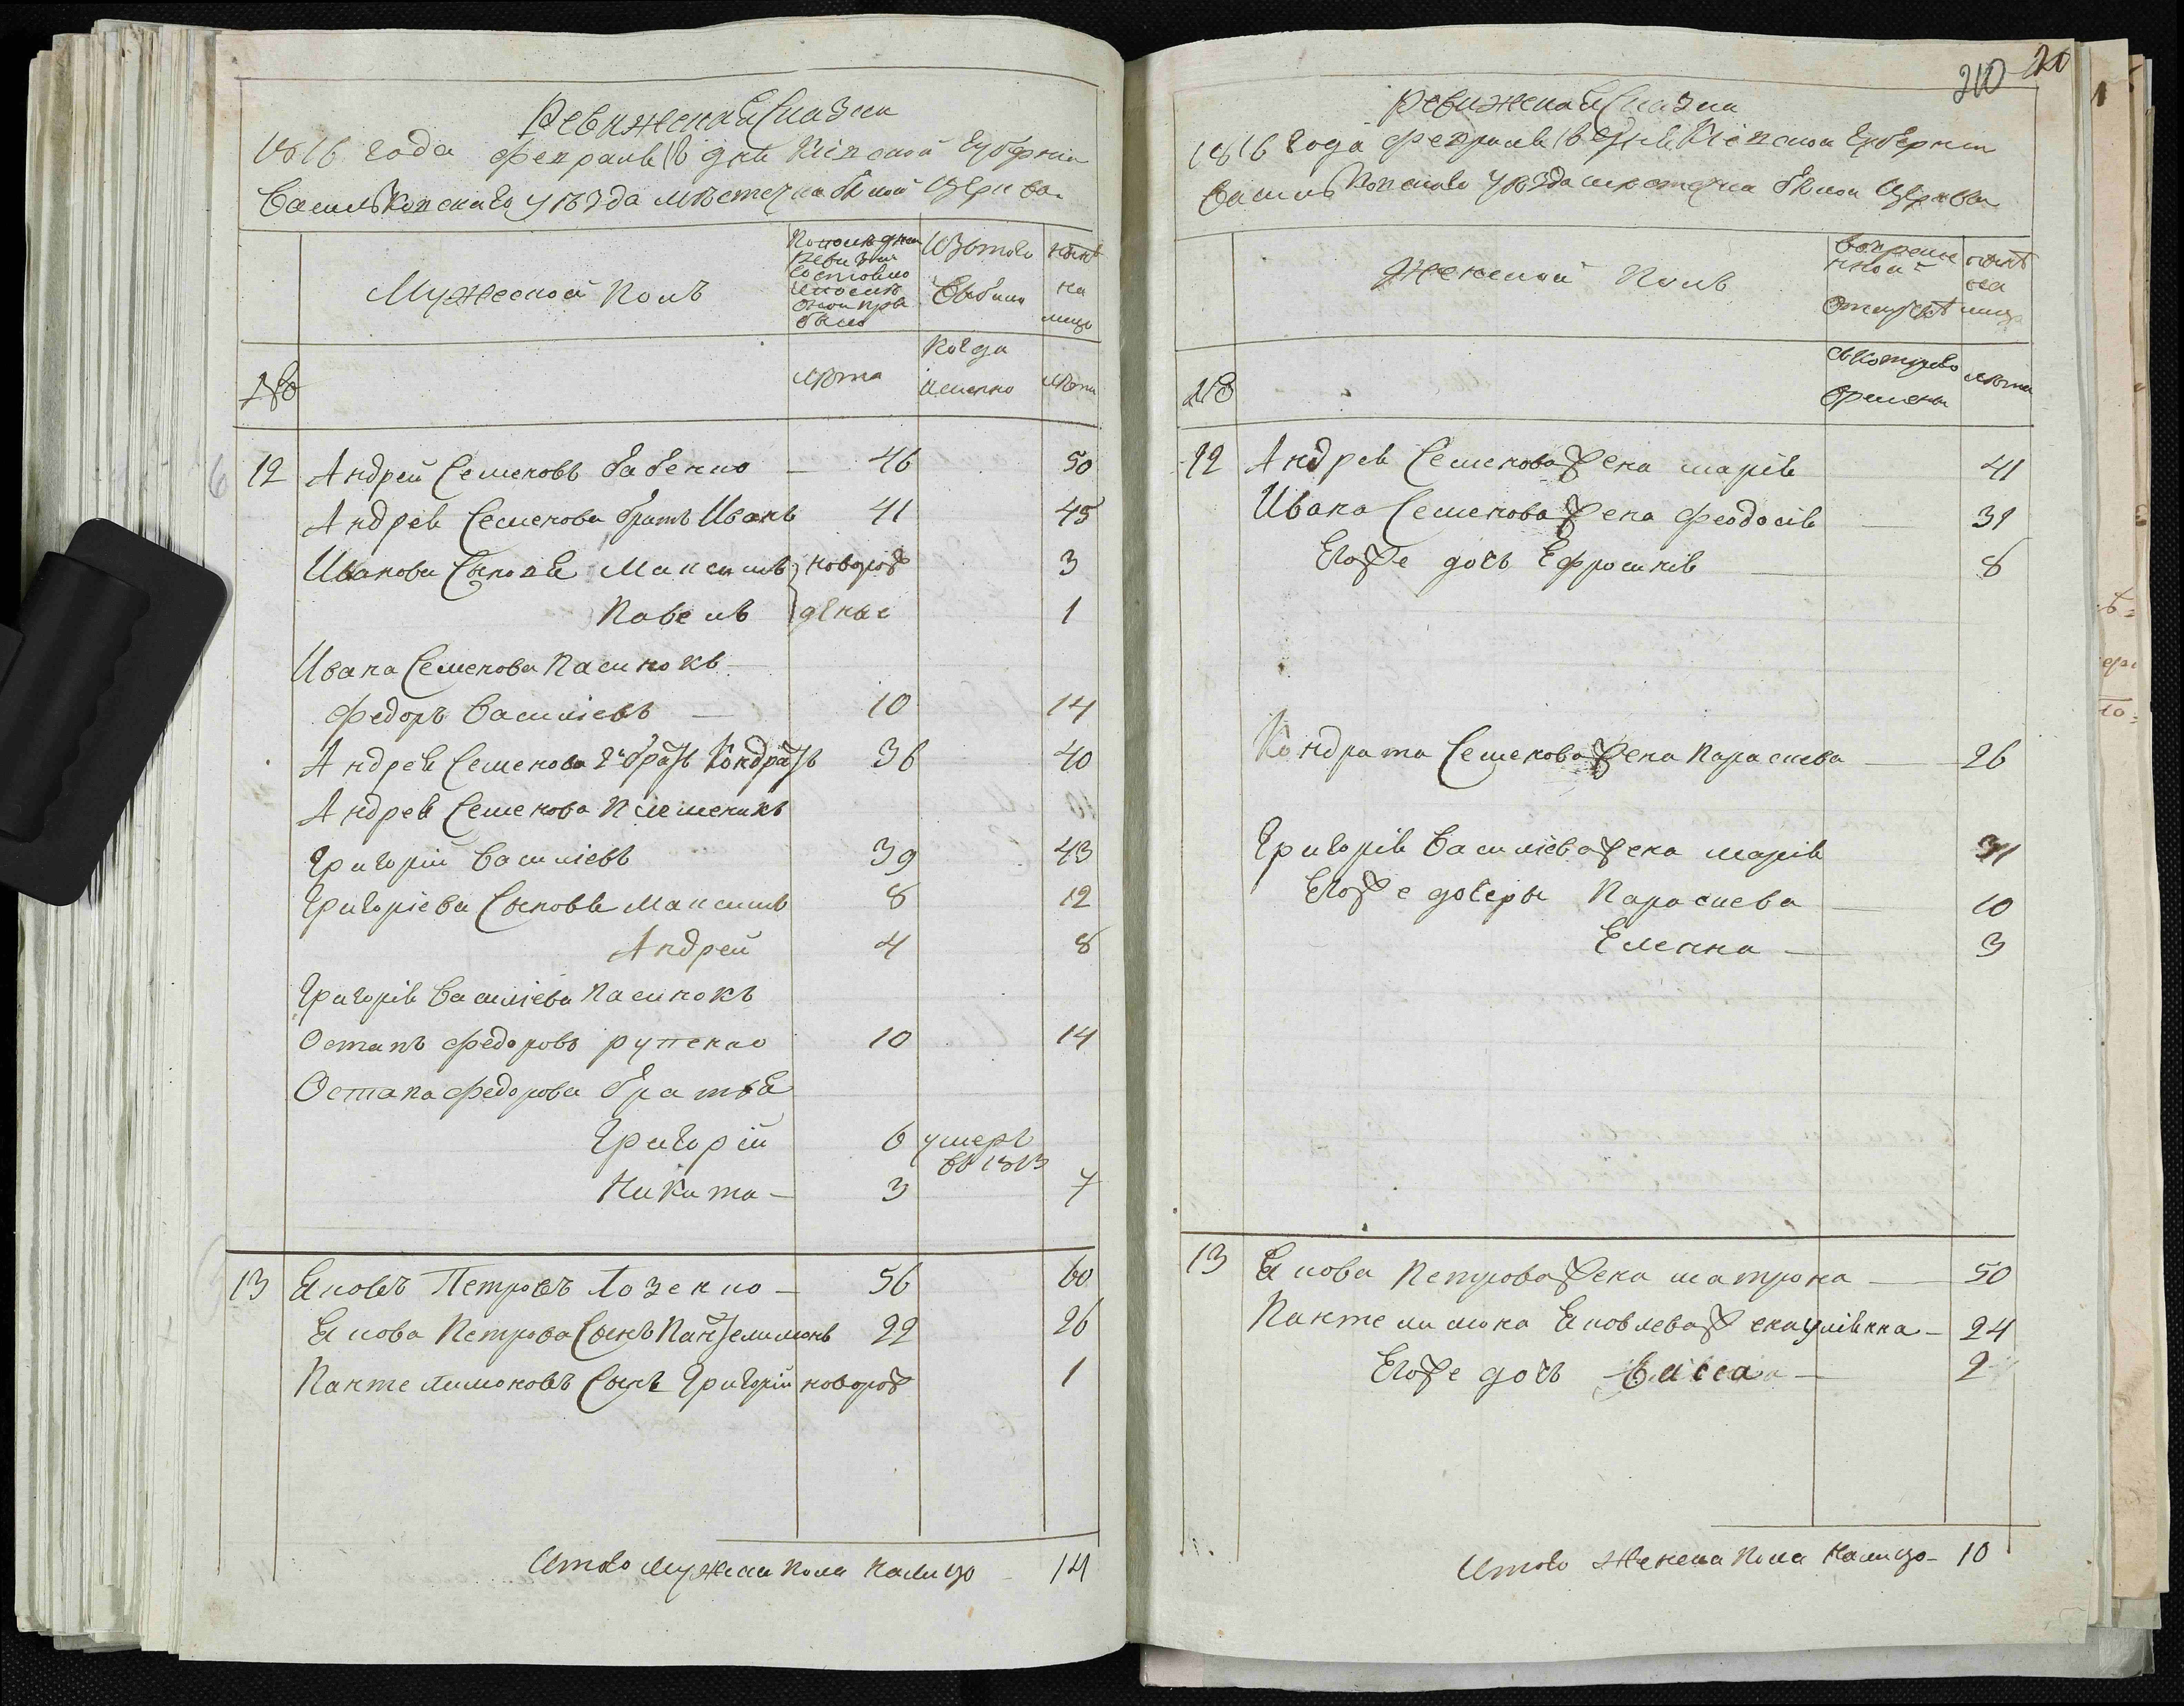 Ревижская Сказка
1816 года февраля 18 дня Кіевской Губерніи
Васильковскаго уѣзда мѣстечка бѣлой Церкви
Мужеской Полъ
По последней
Ревизіи
состояло
и после
оной при
было
Изътого
Выбыло
нынѣ
на
лицо
№
лѣта
Когда
именно
лѣта
12 Андрей Семеновъ бабенко — 46 50
Андрея Семенова братъ Иванъ 41 45
Ивановы Сыновья Максимъ новорож 3
Павелъ денные 1
Ивана Семенова Пасинокъ
Федоръ Василіевъ — 10 14
Андрея Семенова 2й братъ Кондратъ 36 40
Андрея Семенова Племеникъ
Григорій Василіевъ 39 43
Григоріевы Сыновья Максимъ 8 12
Андрей 4 8
Григорія Василіева Пасинокъ
Остапъ Федоровъ рупенко 10 14
Остапа Федорова братья
Григорій 6 умеръ
въ 1813
Никита — 3 7
13 Яковъ Петровъ Лозенко — 56 60
Якова Петрова Сынъ Пантелимонъ 22 26
Пантелимоновъ Сынъ Григорій новорож 1
Итого Мужеска пола налицо — 14
210 210
Ревижская Сказка
1816 года февраля 18 дня Кіевской Губерніи
Васильковскаго уѣзда мѣстечка бѣлой Церкви
Женской Полъ
Вовреме
нной
Отлучкѣ
нынѣ
на
лицо
№
съкоторого
времены
лѣта
12 Андрея Семенова жена марія 41
Ивана Семенова жена Феодосія — 31
Егоже дочь Ефросинія — 8
Кондрата Семенова жена Параскева — 26
Григорія Василіева жена марія 31
Егоже дочеры Параскева — 10
Еленна — 3
13 Якова Петрова жена матрона — 50
Пантелимона Яковлева жена уліянна — 24
Егоже дочь Васса — 2
Итого Женска Пола Налицо — 10